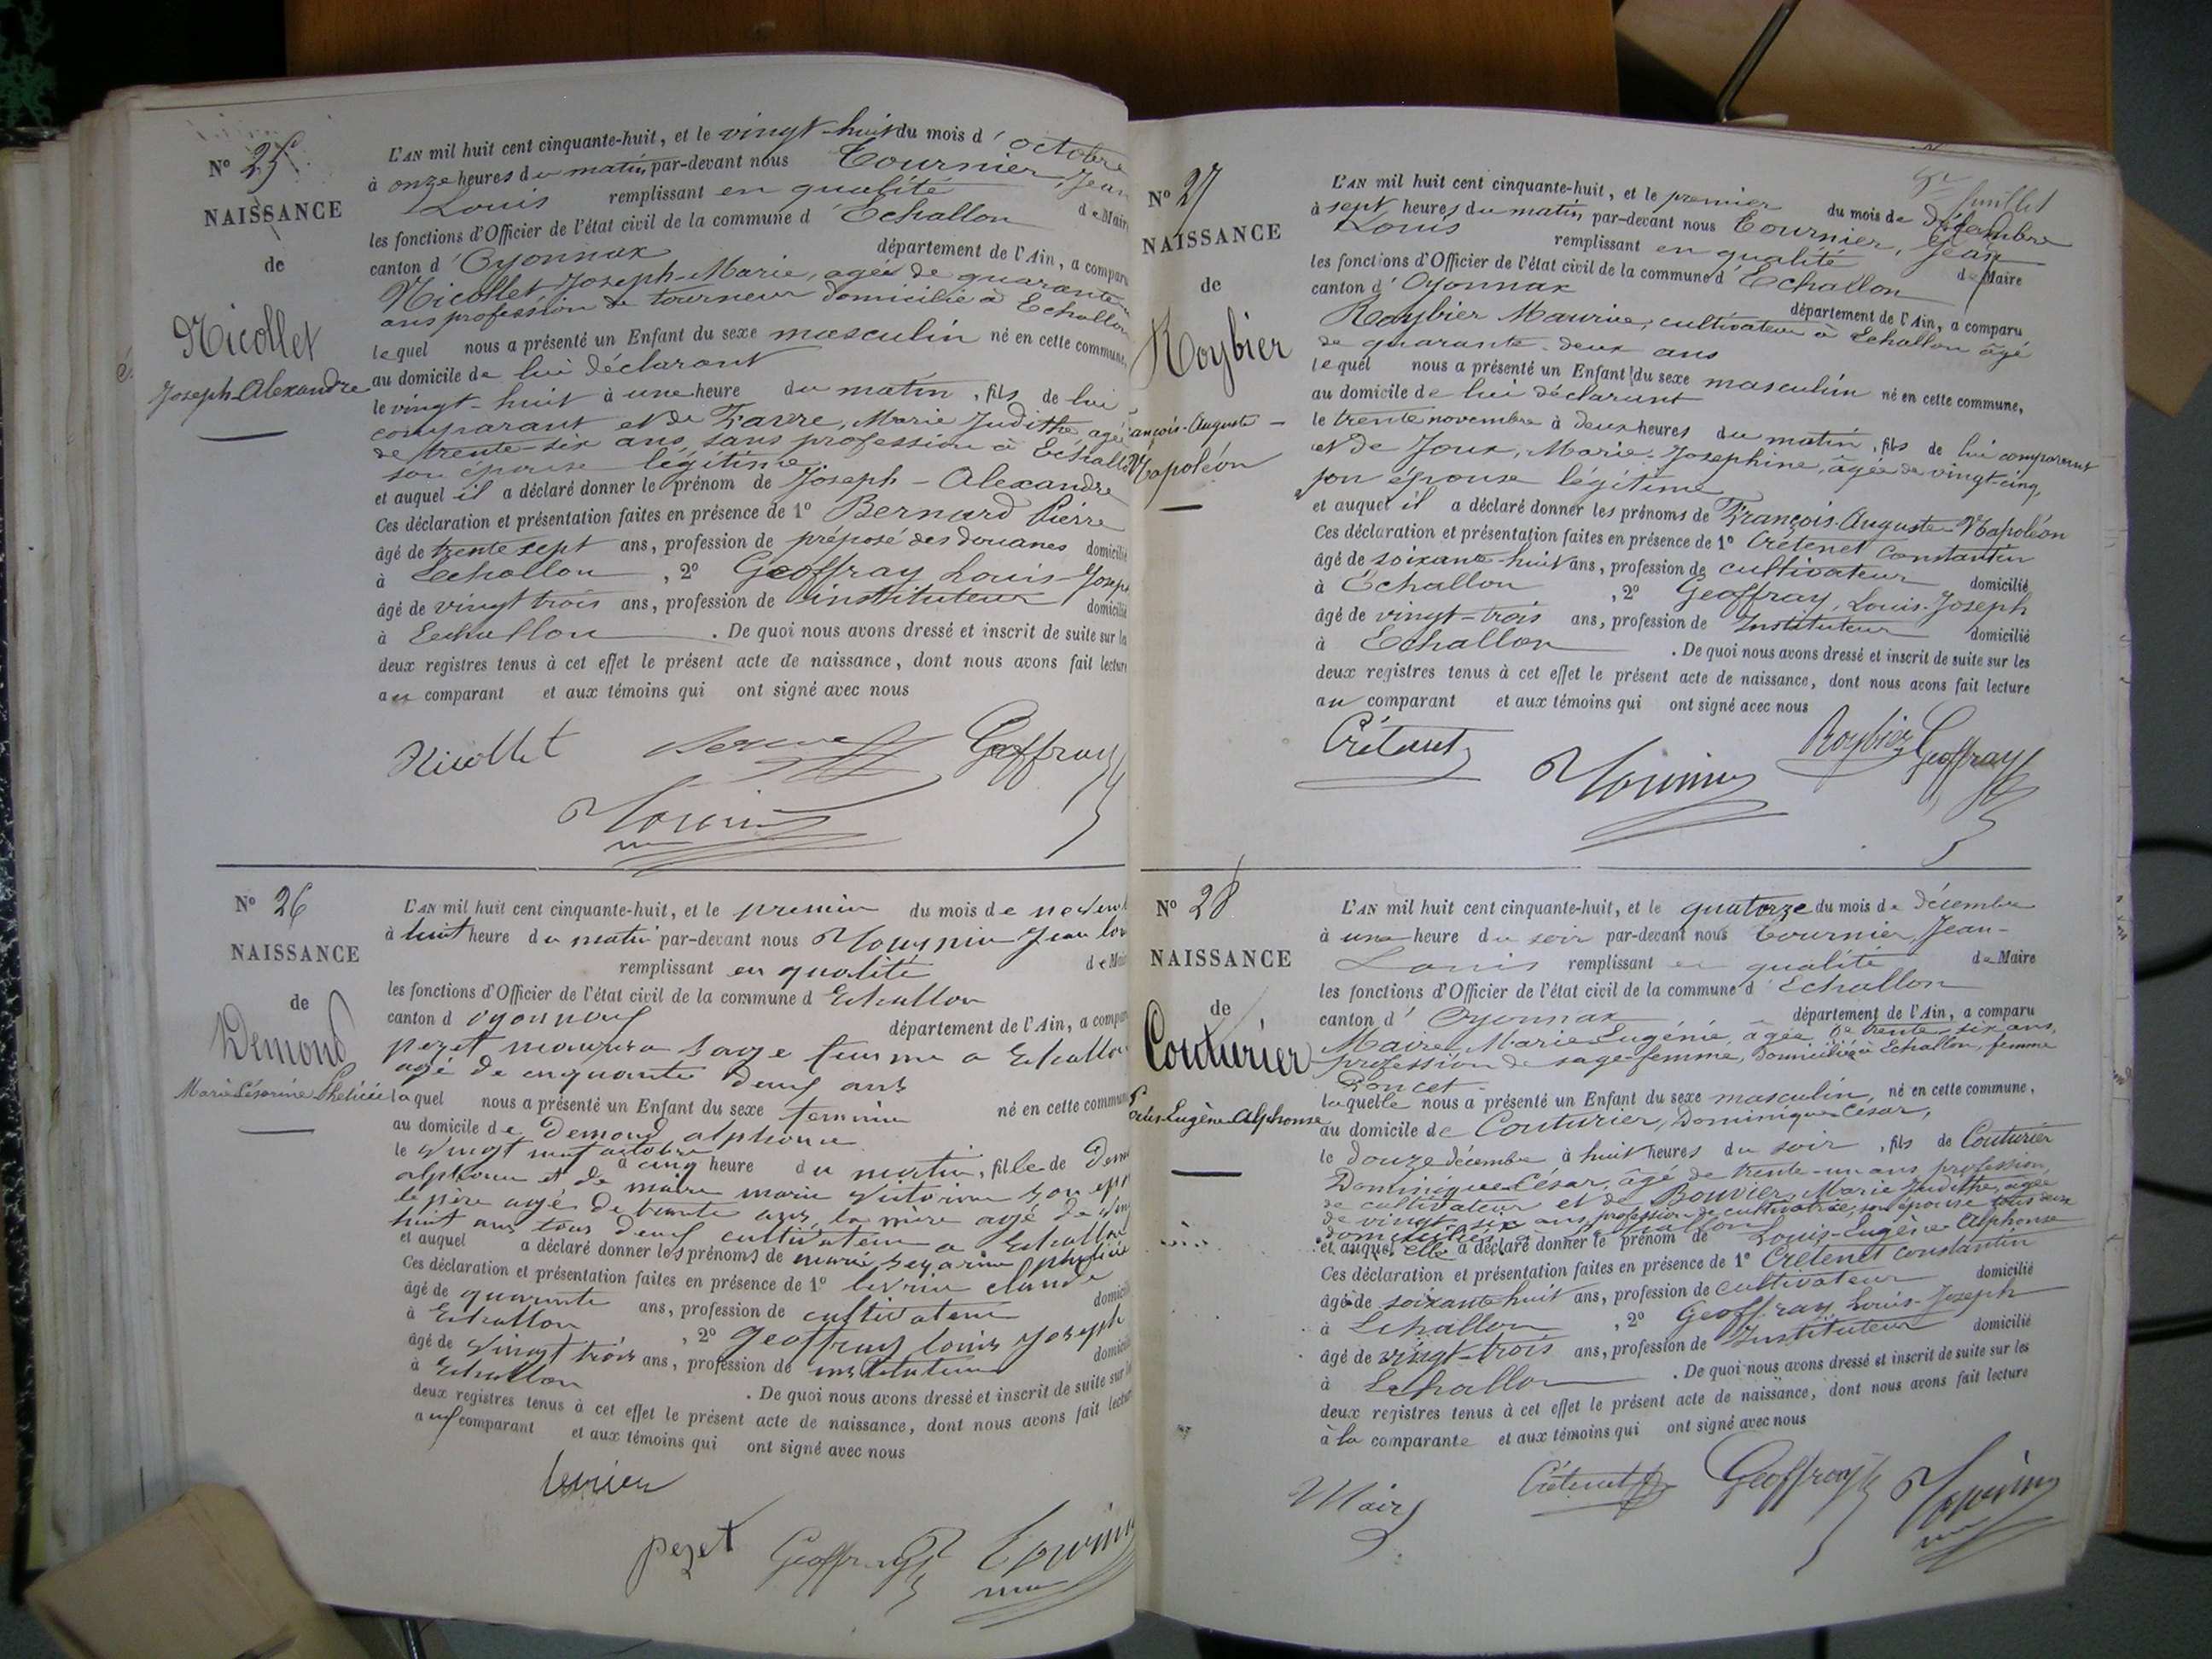 N° 25
NAISSANCE
de
Nicollet
Joseph-Alexandre
L'AN mil huit cent cinquante-huit, et le vingt-huit du mois d'octobre
à onze heures du matin par-devant nous Tournier, Jean
Louis remplissant en qualité de Maire
les fonctions d'Officier de l'état civil de la commune d'Echallon
canton d'Oyonnax département de l'Ain, a comparu
Nicollet Joseph-Marie, agée de quarante
ans profession de tourneur domicilié à Echallon
lequel nous a présenté un Enfant du sexe masculin né en cette commune,
au domicile de lui déclarant
le vingt-huit à une heure du matin, fils de lui
comparant et de Favre, Marie Judithe, agée
de trente-six ans, sans profession à Echallon
son épouse légitime
et auquel il a déclaré donner le prénom de Joseph-Alexandre
Ces déclaration et présentation faites en présence de 1° Bernard Pierre
âgé de trente sept ans, profession de préposé des douanes domicilié
à Echallon, 2° Geoffray Louis-Joseph
âgé de vingt trois ans, profession de instituteur domicilié
à Echallon. De quoi nous avons dressé et inscrit de suite sur la
deux registres tenus à cet effet le présent acte de naissance, dont nous avons fait lecture
au comparant et aux témoins qui ont signé avec nous
Nicollet Geoffray
Tournier
N° 26
NAISSANCE
de
Demond
Marie Césarine Phélicie
L'AN mil huit cent cinquante-huit, et le premier du mois de novem
à huit heure du matin par-devant nous Tournier Jean lou
remplissant en qualité de Mai
les fonctions d'Officier de l'état civil de la commune d Echallon
canton d oyonnax département de l'Ain, a compar
pezet sage femme a Echallon
agé de cinquante deux ans
laquel nous a présenté un Enfant du sexe feminin né en cette commun
au domicile de Demond alphonse
le vingt neuf octobre à cinq heure du matin, fille de Dem
alphonse et de maire marie victorine son ep
le père agé de trente ans, la mère agé de vin
huit ans tous deux cultivateur a Echallon
et auquel a déclaré donner les prénoms de marie sezarine phelicie
Ces déclaration et présentation faites en présence de 1° levrier claude
âgé de quarante ans, profession de cultivateur domicilié
à Echallon, 2° Geoffray louis joseph
âgé de vingt trois ans, profession de instituteur domicilié
à Echallon. De quoi nous avons dressé et inscrit de suite sur
deux registres tenus à cet effet le présent acte de naissance, dont nous avons fait lecture
aux comparant et aux témoins qui ont signé avec nous
levrier
pezet Geoffray Tournier
N° 27
NAISSANCE
de
Roybier
ançois-Auguste-
Napoléon
juillet
L'AN mil huit cent cinquante-huit, et le premier du mois de décembre
à sept heures du matin, par-devant nous Tournier, Jean
Louis remplissant en qualité de Maire
les fonctions d'Officier de l'état civil de la commune d'Echallon
canton d'Oyonnax département de l'Ain, a comparu
Roybier Maurice, cultivateur à Echallon âgé
de quarante-deux ans
lequel nous a présenté un Enfant du sexe masculin né en cette commune,
au domicile de lui déclarant
le trente novembre à deux heures du matin, fils de lui comparant
et de Joux, Marie-Josephine, âgée de vingt-cinq,
son épouse légitime
et auquel il a déclaré donner les prénoms de François-Auguste-Napoléon
Ces déclaration et présentation faites en présence de 1° Crétenet Constantin
âgé de soixante-huit ans, profession de cultivateur domicilié
à Echallon, 2° Geoffray, Louis-Joseph
âgé de vingt-trois ans, profession de Instituteur domicilié
à Echallon. De quoi nous avons dressé et inscrit de suite sur les
deux registres tenus à cet effet le présent acte de naissance, dont nous avons fait lecture
au comparant et aux témoins qui ont signé avec nous
Crétenet Tournier Roybier Geoffray
N° 28
NAISSANCE
de
Couturier
Eugène Alphonse
L'AN mil huit cent cinquante-huit, et le quatorze du mois de décembre
à une heure du soir par-devant nous Tournier, Jean-
Louis remplissant en qualité de Maire
les fonctions d'Officier de l'état civil de la commune d'Echallon
canton d'Oyonnax département de l'Ain, a comparu
Maire, Marie Eugénie, âgée de trente-six ans,
profession de sage-femme, domiciliée à Echallon, femme
Poncet
laquelle nous a présenté un Enfant du sexe masculin, né en cette commune,
au domicile de Couturier, Dominique César,
le douze décembre à huit heures du soir, fils de Couturier
Dominique César, âgé de trente-un ans, profession
de cultivateur et de Bouvier, Marie Judithe, agée
de vingt-six ans, profession de cultivatrice, son épouse tous deux
domiciliés à Echallon
et auquel elle a déclaré donner le prénom de Louis-Eugène Alphonse
Ces déclaration et présentation faites en présence de 1° Crétenet Constantin
âgé de soixante huit ans, profession de cultivateur domicilié
à Echallon, 2° Geoffray, Louis-Joseph
âgé de vingt-trois ans, profession de Instituteur domicilié
à Echallon. De quoi nous avons dressé et inscrit de suite sur les
deux registres tenus à cet effet le présent acte de naissance, dont nous avons fait lecture
à la comparante et aux témoins qui ont signé avec nous
Maire Crétenet Geoffray Tournier